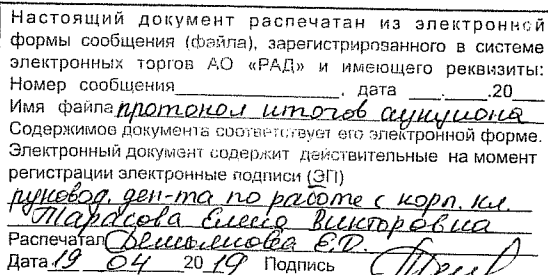 Настоящий документ распечатан из электронной
формы сообщения (файла), зарегистрированного в системе
электронных торгов АО «РАД» и имеющего реквизиты:
Номер сообщения____________, дата ___.___.20__
Имя файла протокол итогов аукциона
Содержимое документа соответствует его электронной форме.
Электронный документ содержит действительные на момент
регистрации электронные подписи (ЭП)
руковод. деп-та по работе с корп. кл.
Тарасова Елена Викторовна
Распечатал Е.Ю.
Дата 19 04 2019 Подпись